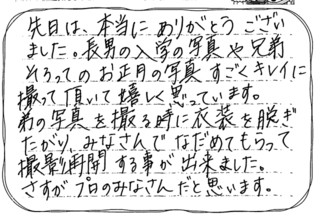 先日は、本当に ありがとう ござい
ました。長男の入学の写真や兄弟
そろっての お正月の写真 すごくキレイに
撮って頂いて嬉しく思っています。
弟の写真を撮る時に衣装を脱ぎ
たがり、みなさんで なだめてもらって
撮影再開する事が出来ました。
さすが プロのみなさんだと思います。